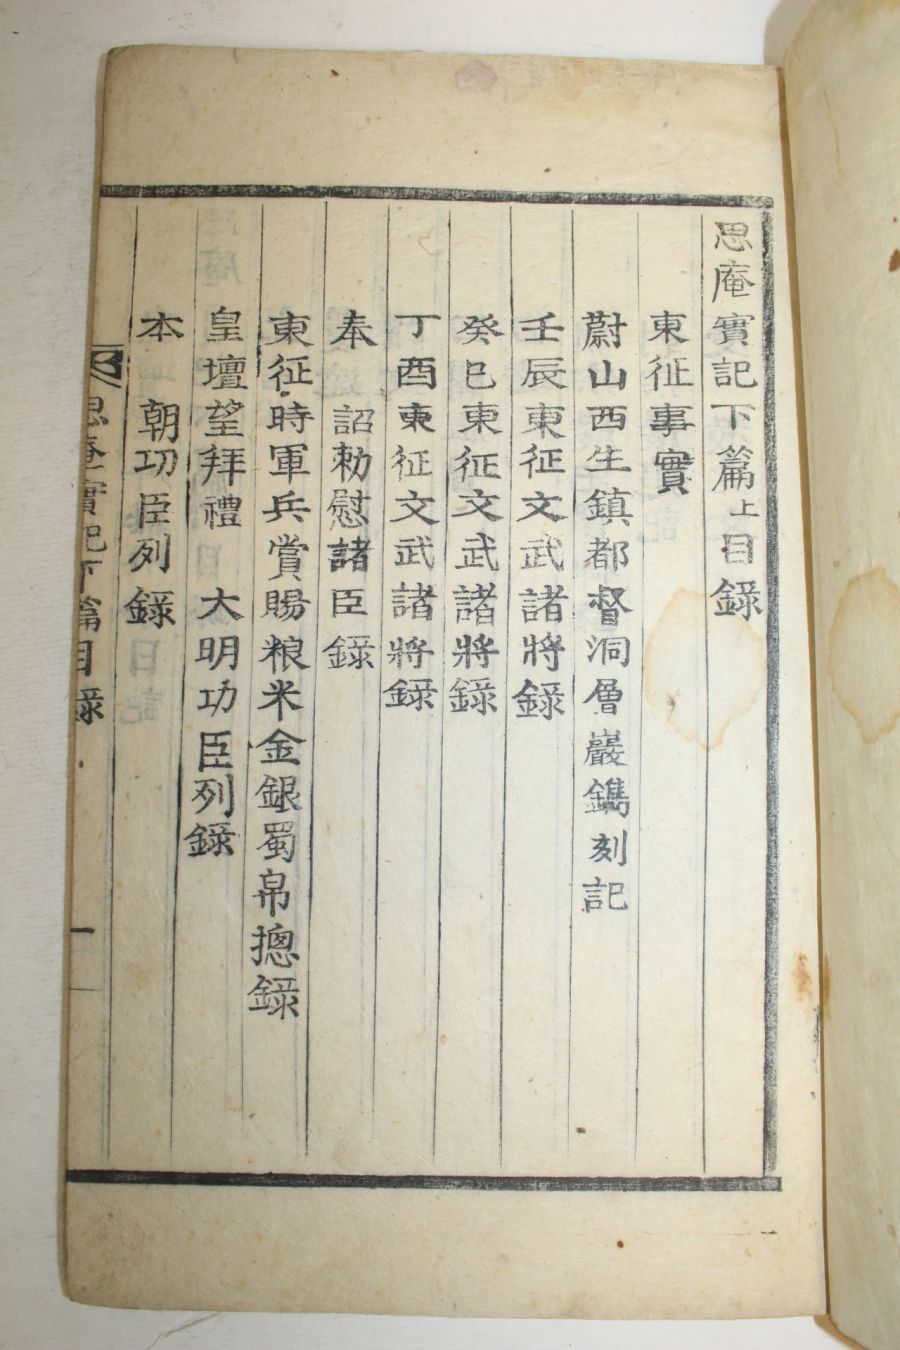 思庵實記下篇上目錄
東征事實
蔚山西生鎮都督洞層巖鐫刻記
壬辰東征文武諸將錄
癸巳東征文武諸將錄
丁酉東征文武諸將錄
奉 詔勑慰諸臣錄
東征時軍兵賞賜粮米金銀蜀帛摠錄
皇壇望拜禮 大明功臣列錄
本 朝功臣列錄
思庵實記下篇目錄 一